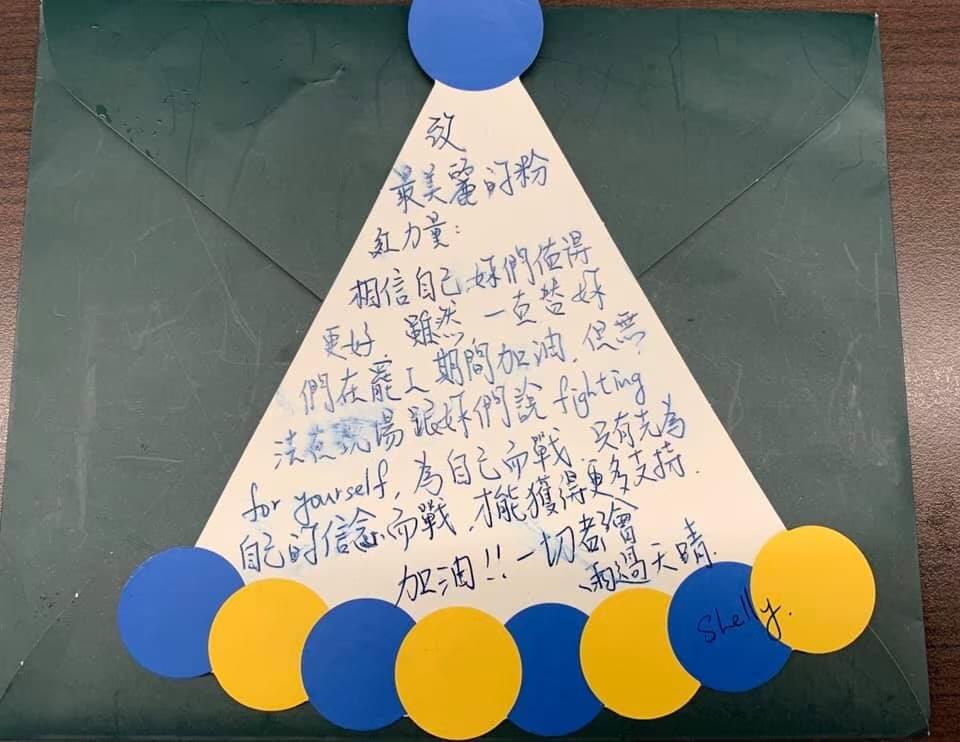 致
最美麗的粉
紅力量：
相信自己，妳們值得
更好，雖然一直替妳
們在罷工期間加油，但無
法在現場跟妳們說 fighting
for yourself，為自己而戰，只有先為
自己的信念而戰，才能獲得更多支持．
加油！！一切都會
雨過天晴．
Shelly.